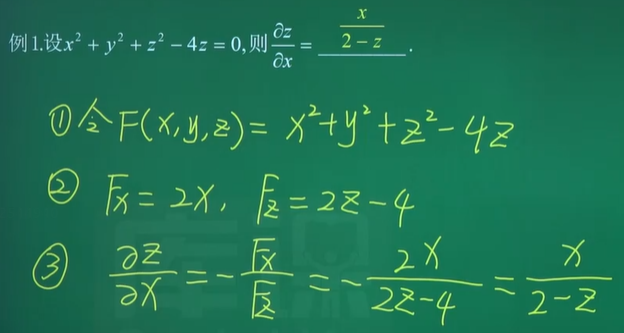 例1.设x² + y² + z² − 4z = 0,则∂z/∂x = x/(2 − z).
①令F(x,y,z)= x²+y²+z²-4z
② Fx = 2x, Fz = 2z-4
③ ∂z/∂x = -Fx/Fz = -2x/(2z-4) = x/(2-z)